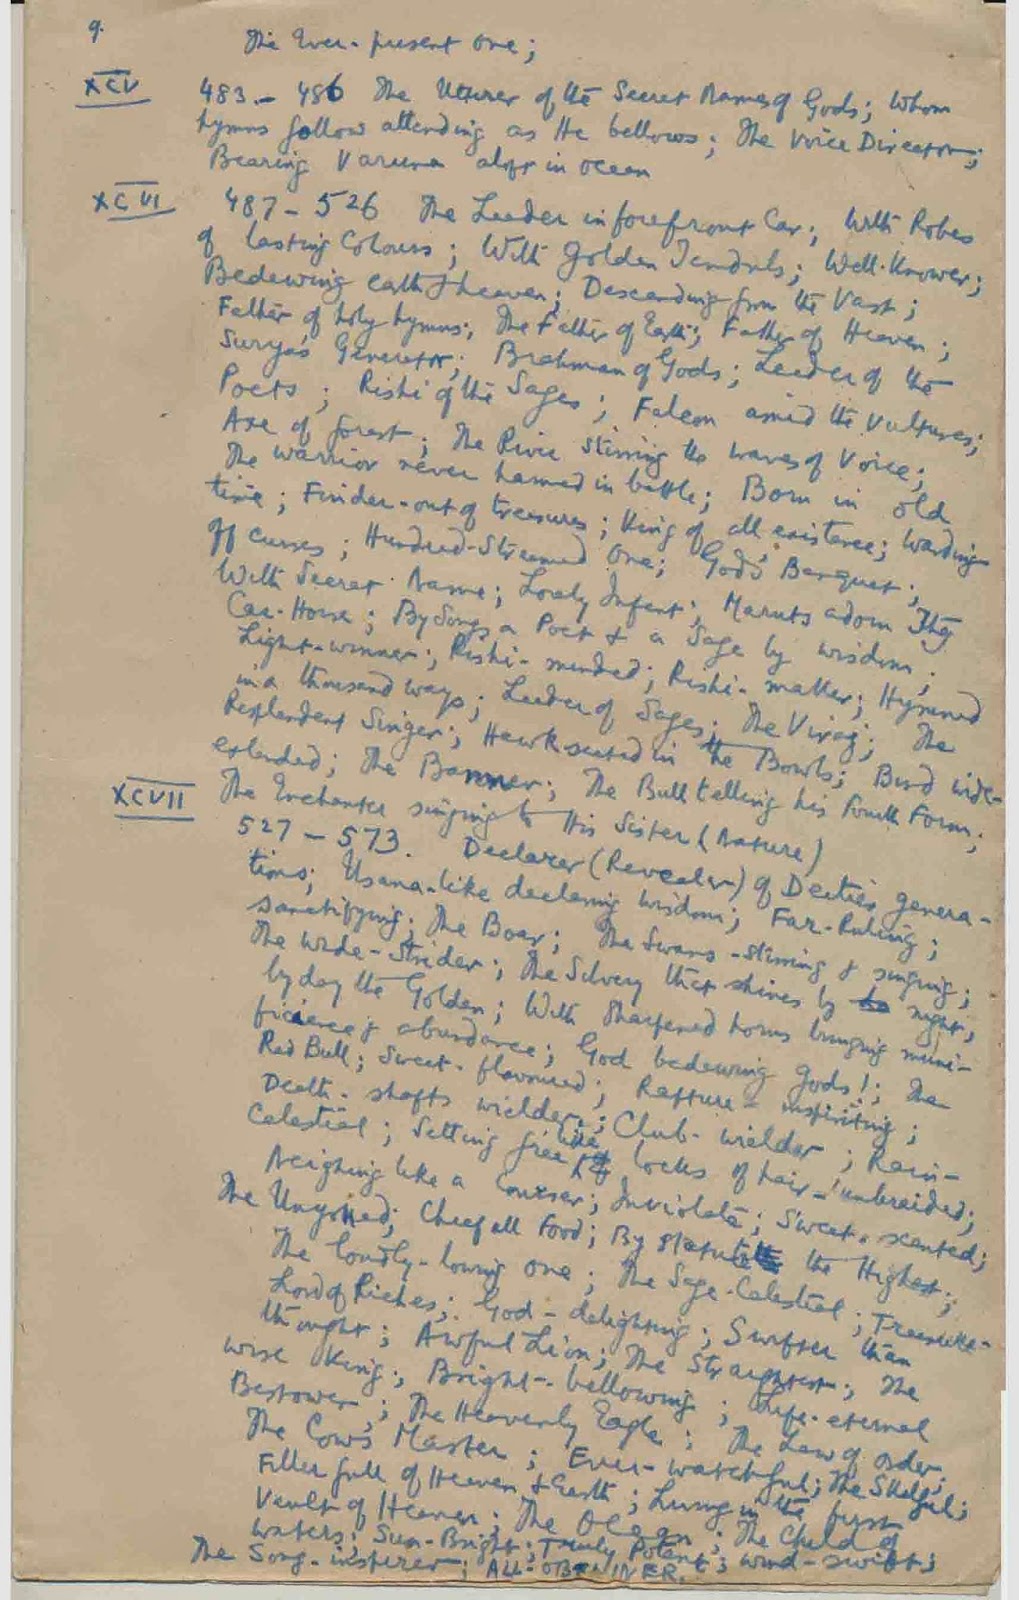 9.
The Ever-present one;
XCV 483.- 486 The Utterer of the Secret Names of Gods; Whom
hymns follow attending as He bellows; The Voice Director;
Bearing Varuna aloft in ocean
XCVI 487-526 The Leader in forefront Car; With Robes
of lasting Colours; With Golden Tendrils; Well-Knower;
Bedewing earth & heaven; Descending from the Vast;
Father of holy hymns; The Father of Earth; Father of Heaven;
Surya's Generator; Brahman of Gods; Leader of the
Poets; Rishi of the Sages; Falcon amid the Vultures;
Axe of forest; The River stirring the waves of Voice;
The warrior never harmed in battle; Born in old
time; Finder-out of treasures; King of all existence; Warding
off curses; Hundred-Streamed One; Gods' Banquet;
With Secret Name; Lovely Infant; Maruts adorn Thy
Car-Horse; By Songs a Poet & a Sage by wisdom;
Light-winner; Rishi-minded; Rishi-maker; Hymned
in a thousand ways; Leader of Sages; The Viraj; The
Resplendent Singer; Hawk seated in the Bowls; Bird wide-
extended; The Banner; The Bull telling his fourth Form;
The Enchanter singing to His Sister (Nature)
XCVII 527-573. Declarer (Revealer) of Deities genera-
tions; Usana-like declaring wisdom; Far-Ruling;
sanctifying; The Boar; The Swans-stirring & singing;
The wide-Strider; The Silvery that shines by night,
by day the Golden; With sharpened horns bringing muni-
ficience & abundance; God bedewing gods!; The
Red Bull; Sweet-flavoured; Rapture-inspiriting;
Death-shafts wielder; Club-wielder; Rain-
Celestial; Setting free like locks of hair-unbraided;
Neighing like a Courser; Inviolate; Sweet-scented;
The Ungorged; Chief all Food; By statute the Highest;
The loudly-lowing one; The Sage-Celestial; Treasure-
Lord of Riches; God-delighting; Swifter than
thought; Awful Lion; The Straightest; The
wise King; Bright-bellowing; Life-eternal
Bestower; The Heavenly Eagle; The Law of order;
The Cow's Master; Ever-watchful; The Skilful;
Filler full of Heaven & Earth; Living in the first
Vault of Heaven; The Ocean; The Child of
waters; Sun-Bright; Truly Potent; wind-swift;
The Song-inspirer; ALL-OBTAINER.